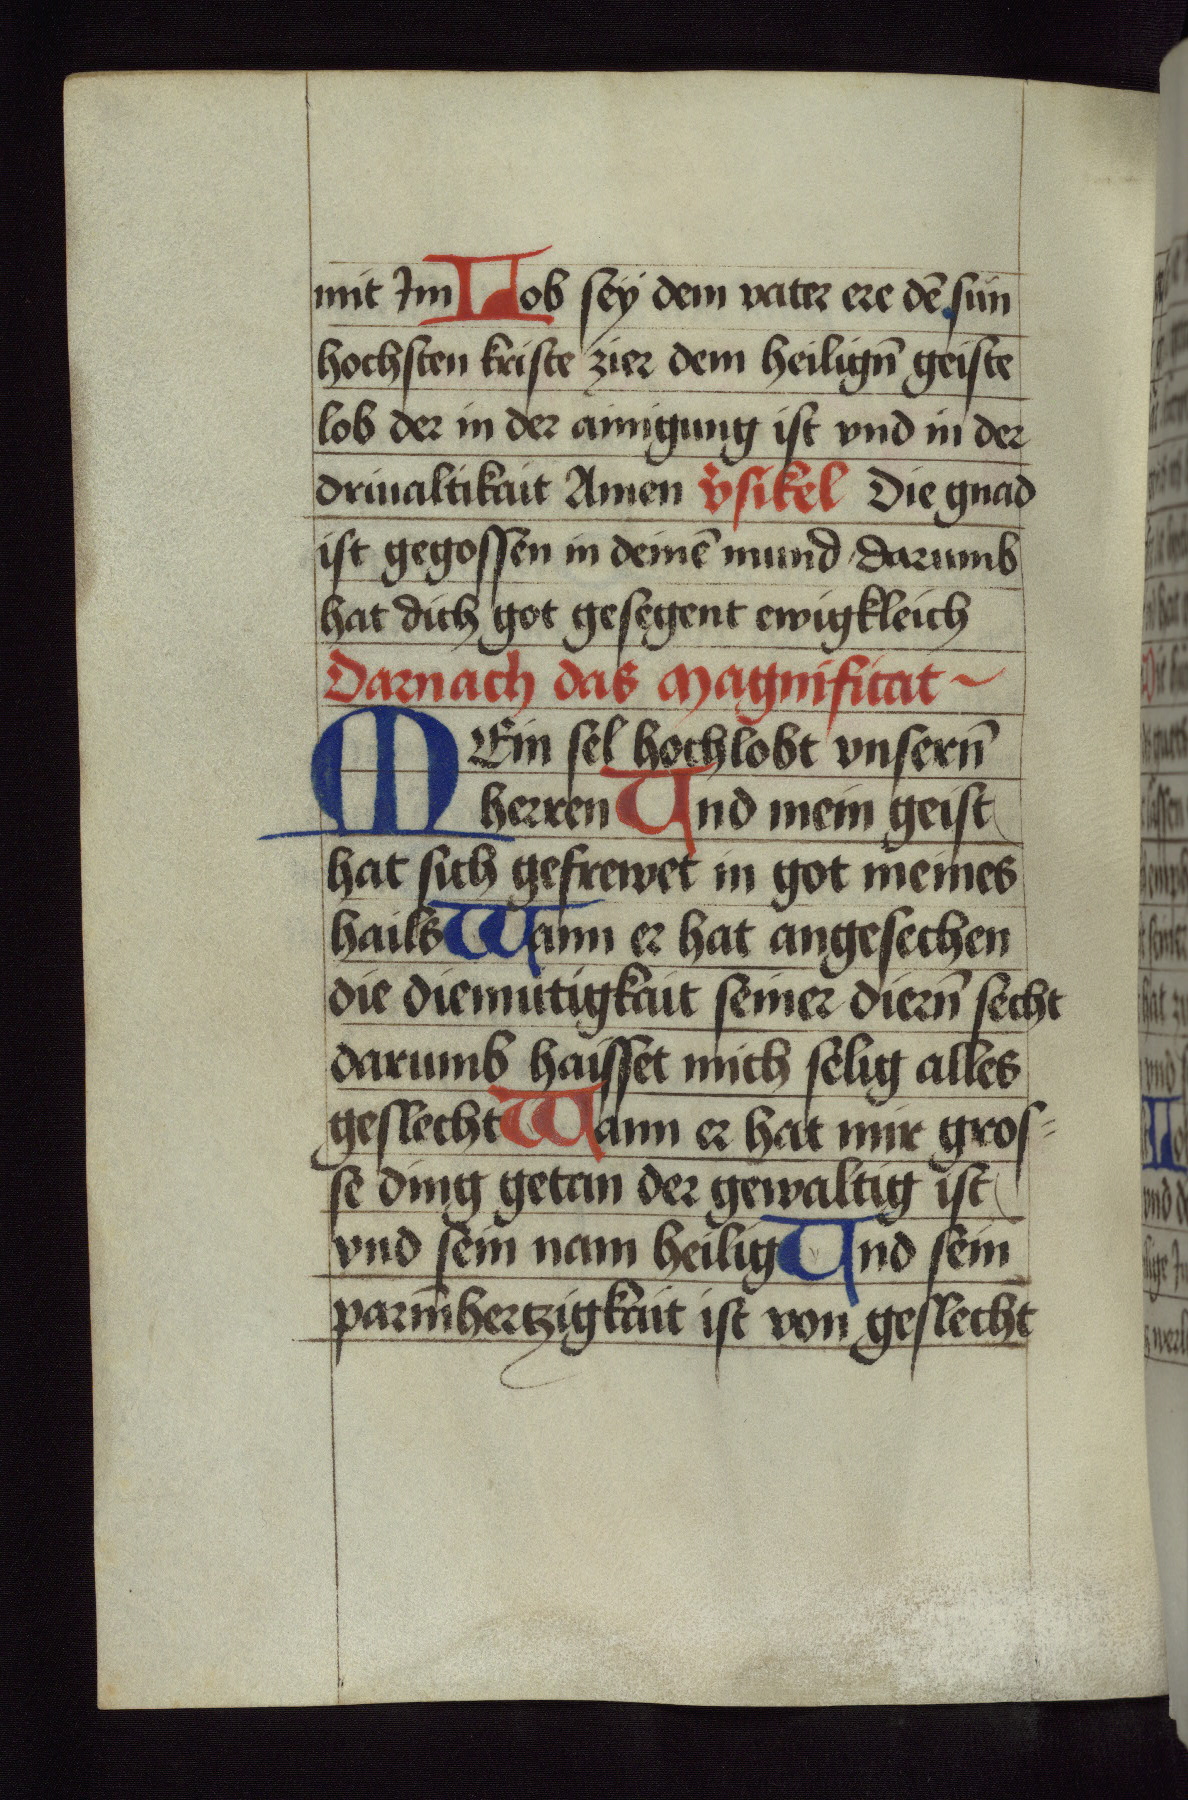 mit Im Lob sey dem vater ere dē sun
hochsten kriste zier dem heilign̄ geiste
lob der in der ainigung ist vnd in der
driualtikait Amen v̄sikel Die gnad
ist gegossen in deinē mund darumb
hat dich got gesegent ewigkleich
Darnach das Magnificat ~
MEin sel hochlobt vnsern̄
herren Und mein geist
hat sich gefrewet in got meines
hails Wann er hat angesechen
die diemutigkait seiner diern̄ secht
darumb haisset mich selig alles
geslecht Wann er hat mir gros=
se ding getan der gewaltig ist
vnd sein nam heilig Und sein
parm̄hertzigkait ist von geslecht